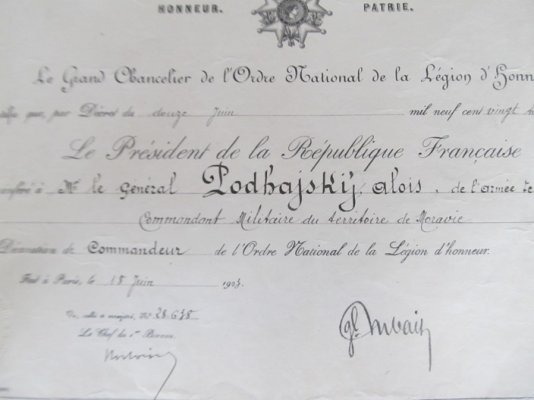 HONNEUR. PATRIE.
Le Grand Chancelier de l'Ordre National de la Légion d'Honn
que, par Décret du douze Juin mil neuf cent vingt
Le Président de la République Française
conféré à Mr le Général Podhajskij, Alois, de l'armée
Commandant Militaire du territoire de Moravie
Décoration de Commandeur de l'Ordre National de la Légion d'honneur.
Fait à Paris, le 15 Juin
Vu, scellé et enregistré, No 28.675
Le Chef du 1er Bureau